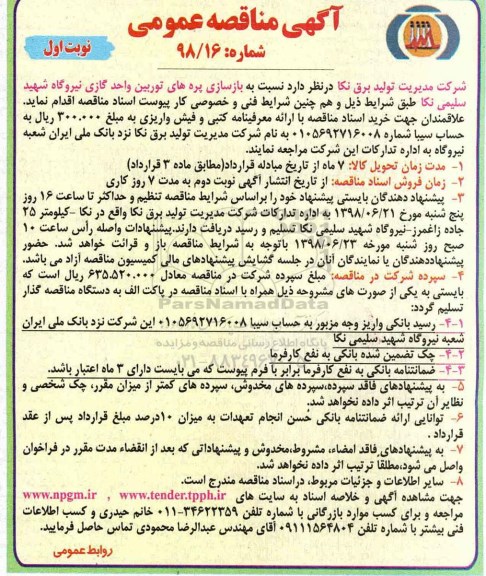 آگهی مناقصه عمومی
شماره: ۹۸/۱۶
نوبت اول
شرکت مدیریت تولید برق نکا درنظر دارد نسبت به بازسازی پره های توربین واحد گازی نیروگاه شهید
سلیمی نکا طبق شرایط ذیل و هم چنین شرایط فنی و خصوصی کار پیوست اسناد مناقصه اقدام نماید.
علاقمندان جهت خرید اسناد مناقصه با ارائه معرفینامه کتبی و فیش واریزی به مبلغ ۳۰۰.۰۰۰ ریال به
حساب سیبا شماره ۰۱۰۵۶۹۲۷۱۶۰۰۸ به نام شرکت مدیریت تولید برق نکا نزد بانک ملی ایران شعبه
نیروگاه به اداره تدارکات این شرکت مراجعه نمایند.
۱- مدت زمان تحویل کالا: ۷ ماه از تاریخ مبادله قرارداد(مطابق ماده ۳ قرارداد)
۲- زمان فروش اسناد مناقصه: از تاریخ انتشار آگهی نوبت دوم به مدت ۷ روز کاری
۳- پیشنهاد دهندگان بایستی پیشنهاد خود را براساس شرایط مناقصه تنظیم و حداکثر تا ساعت ۱۶ روز
پنج شنبه مورخ ۱۳۹۸/۰۶/۲۱ به اداره تدارکات شرکت مدیریت تولید برق نکا واقع در نکا -کیلومتر ۲۵
جاده زاغمرز-نیروگاه شهید سلیمی نکا تسلیم و رسید دریافت دارند.پیشنهادات واصله رأس ساعت ۱۰
صبح روز شنبه مورخه ۱۳۹۸/۰۶/۲۳ باتوجه به شرایط مناقصه باز و قرائت خواهد شد. حضور
پیشنهاددهندگان یا نمایندگان آنان در جلسه گشایش پیشنهادهای مالی کمیسیون مناقصه آزاد می باشد.
۴- سپرده شرکت در مناقصه: مبلغ سپرده شرکت در مناقصه معادل ۶۳۵.۵۲۰.۰۰۰ ریال است که
بایستی به یکی از صورت های مشروحه ذیل همراه با اسناد مناقصه در پاکت الف به دستگاه مناقصه گذار
تسلیم گردد:
۴-۱- رسید بانکی واریز وجه مزبور به حساب سیبا ۰۱۰۵۶۹۲۷۱۶۰۰۸ این شرکت نزد بانک ملی ایران
شعبه نیروگاه شهید سلیمی نکا
۴-۲- چک تضمین شده بانکی به نفع کارفرما
۴-۳- ضمانتنامه بانکی به نفع کارفرما برابر با فرم پیوست که می بایست دارای ۳ ماه اعتبار باشد.
۵- به پیشنهادهای فاقد سپرده،سپرده های مخدوش، سپرده های کمتر از میزان مقرر، چک شخصی و
نظایر آن ترتیب اثر داده نخواهد شد.
۶- توانایی ارائه ضمانتنامه بانکی حُسن انجام تعهدات به میزان ۱۰درصد مبلغ قرارداد پس از عقد
قرارداد .
۷- به پیشنهادهای فاقد امضاء، مشروط،مخدوش و پیشنهاداتی که بعد از انقضاء مدت مقرر در فراخوان
واصل می شود،مطلقا ترتیب اثر داده نخواهد شد.
۸- سایر اطلاعات و جزئیات مربوط، دراسناد مناقصه مندرج است.
جهت مشاهده آگهی و خلاصه اسناد به سایت های www.tender.tpph.ir , www.npgm.ir
مراجعه و برای کسب موارد بازرگانی با شماره تلفن ۳۴۶۲۲۳۵۹-۰۱۱ خانم حیدری و کسب اطلاعات
فنی بیشتر با شماره تلفن ۰۹۱۱۱۵۶۴۸۰۴ آقای مهندس عبدالرضا محمودی تماس حاصل فرمایید.
روابط عمومی